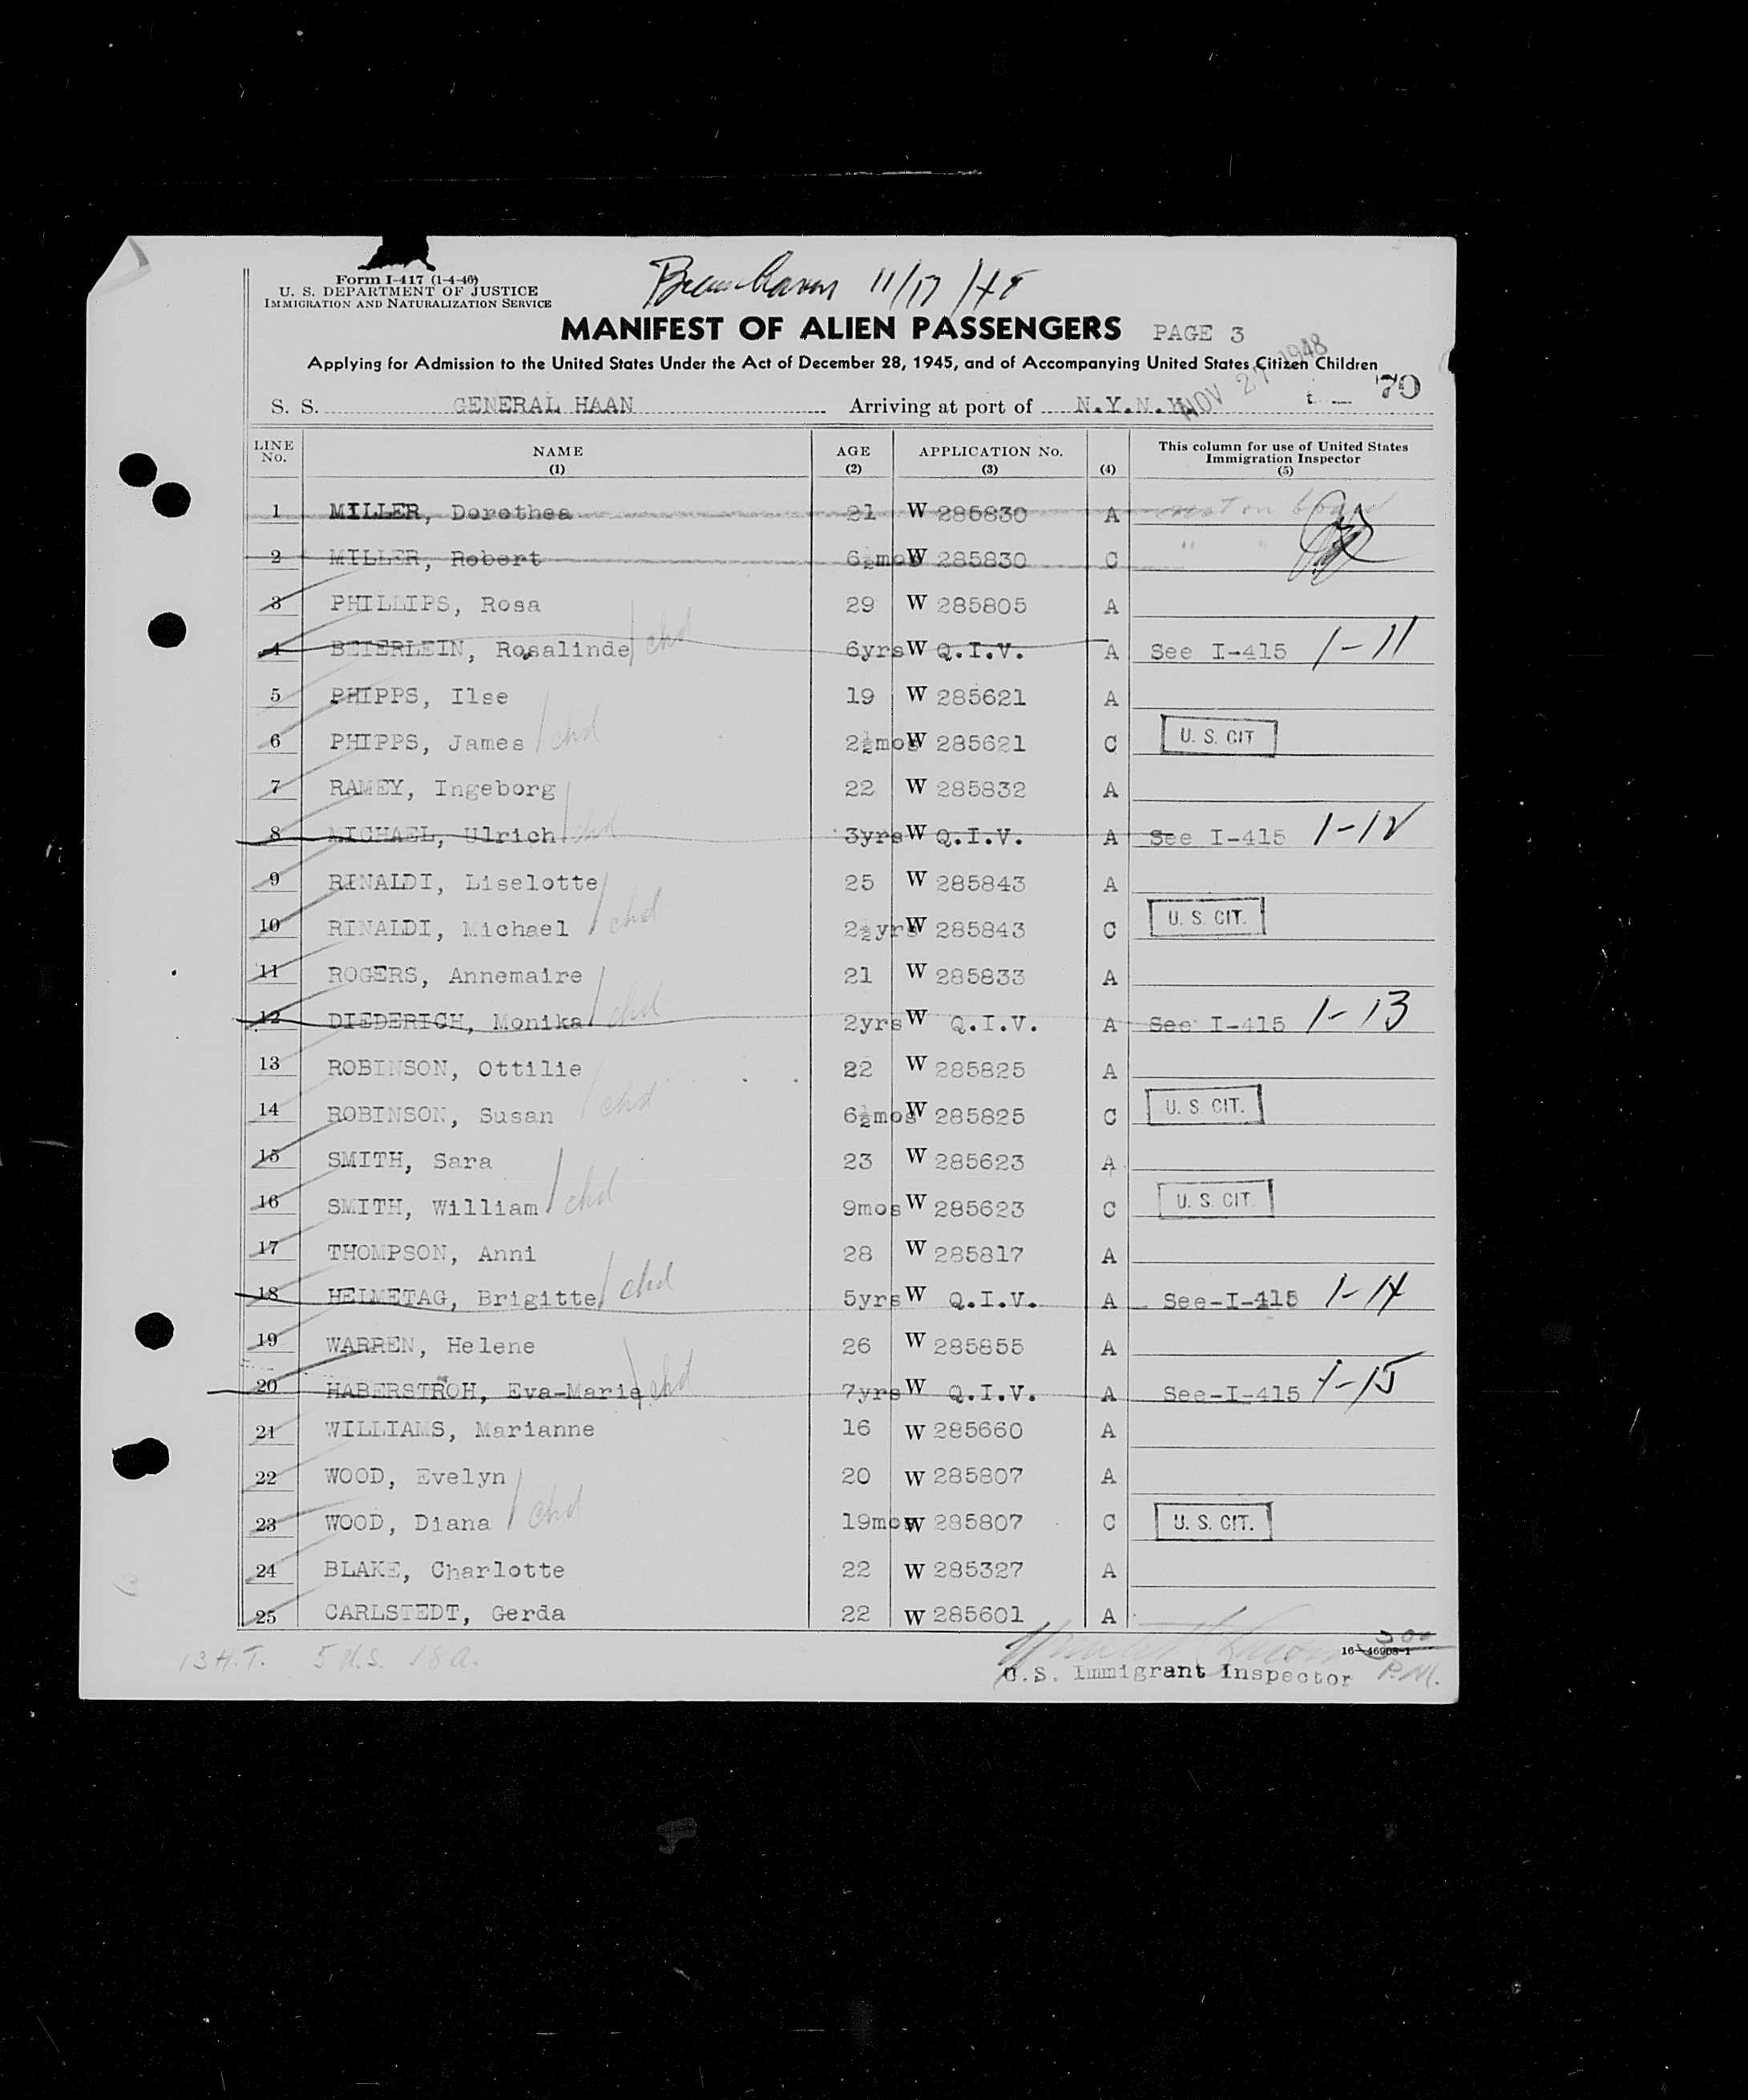 Form I-417 (1-4-46)
U. S. DEPARTMENT OF JUSTICE
IMMIGRATION AND NATURALIZATION SERVICE
11/17/48
MANIFEST OF ALIEN PASSENGERS PAGE 3
Applying for Admission to the United States Under the Act of December 28, 1945, and of Accompanying United States Citizen Children
NOV 27 1948
79
S. S. GENERAL HAAN Arriving at port of N.Y.N.Y.
LINE No. NAME (1) AGE (2) APPLICATION No. (3) (4) This column for use of United States Immigration Inspector (5)
1 MILLER, Dorothea 21 W 285830 A not on board
2 MILLER, Robert 6½mos W 285830 C " "
3 PHILLIPS, Rosa 29 W 285805 A
4 BEIERLEIN, Rosalinde chd 6yrs W Q.I.V. A See I-415 1-11
5 PHIPPS, Ilse 19 W 285621 A
6 PHIPPS, James chd 2½mos W 285621 C U. S. CIT
7 RAMEY, Ingeborg 22 W 285832 A
8 MICHAEL, Ulrich chd 3yrs W Q.I.V. A See I-415 1-12
9 RINALDI, Liselotte 25 W 285843 A
10 RINALDI, Michael chd 2½yrs W 285843 C U. S. CIT.
11 ROGERS, Annemaire 21 W 285833 A
12 DIEDERICH, Monika chd 2yrs W Q.I.V. A See I-415 1-13
13 ROBINSON, Ottilie 22 W 285825 A
14 ROBINSON, Susan chd 6½mos W 285825 C U. S. CIT.
15 SMITH, Sara 23 W 285623 A
16 SMITH, William chd 9mos W 285623 C U. S. CIT.
17 THOMPSON, Anni 28 W 285817 A
18 HEIMETAG, Brigitte chd 5yrs W Q.I.V. A See-I-415 1-14
19 WARREN, Helene 26 W 285855 A
20 HABERSTROH, Eva-Marie chd 7yrs W Q.I.V. A See-I-415 1-15
21 WILLIAMS, Marianne 16 W 285660 A
22 WOOD, Evelyn 20 W 285807 A
23 WOOD, Diana chd 19mos W 285807 C U. S. CIT.
24 BLAKE, Charlotte 22 W 285327 A
25 CARLSTEDT, Gerda 22 W 285601 A
16-46908-1
300
13 H.T. 18 a.
U.S. Immigrant Inspector P.M.